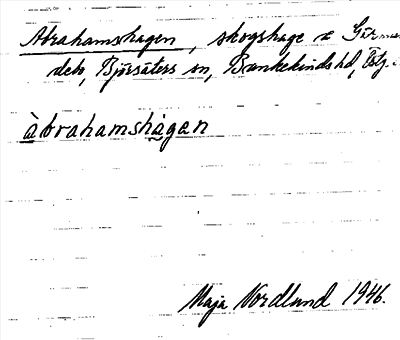 Abrahamshagen, skogshage i
deb, Björsäters sn, Bankekinds hd, Östg.
àbrahamshàgan
Maja Nordlund 1946.